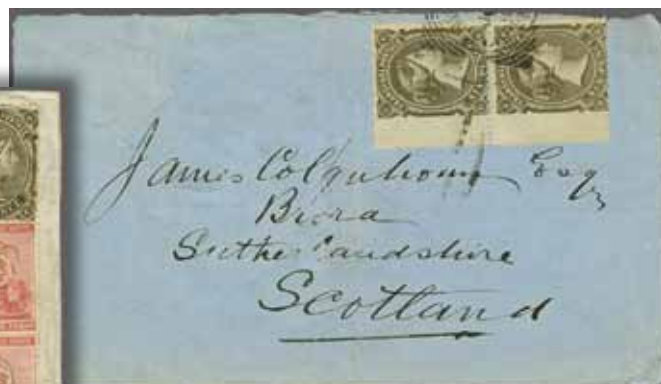 James Colquhoun Esqr
Brora
Sutherlandshire
Scotland